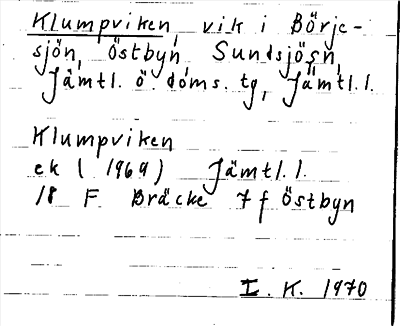 Klumpviken, vik i Börje-
sjön, Östbyn, Sundsjösn,
Jämtl. ö. doms. tg, Jämtl. l.
Klumpviken
ek ( 1969) Jämtl. l.
18 F Bräcke 7 f Östbyn
I. K. 1970